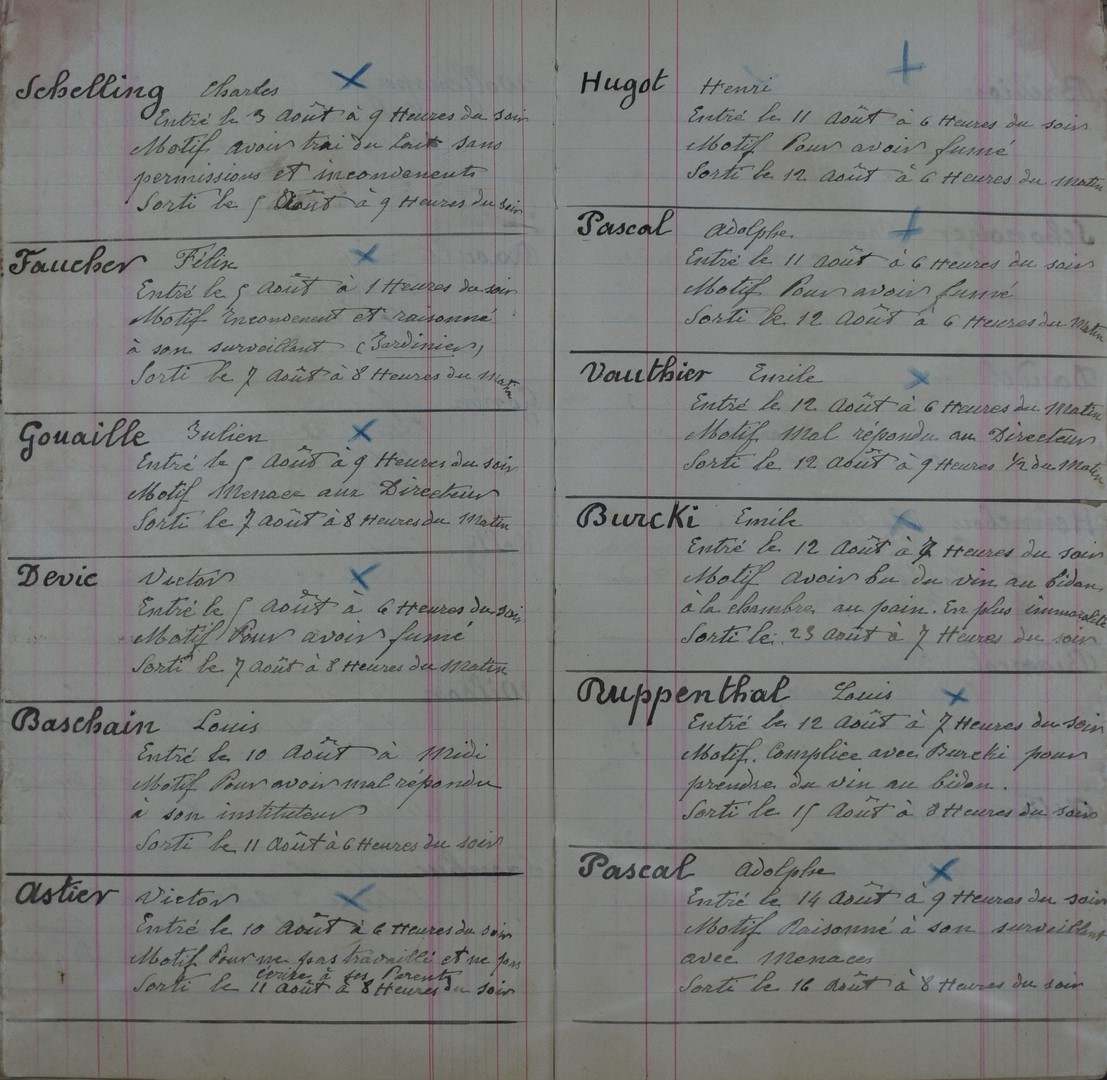 Schelling Charles
Entré le 3 Août à 9 Heures du soir
Motif avoir trai du Lait sans
permissions et inconvenents
Sorti le 5 Août à 9 Heures du soir
Faucher Félix
Entré le 5 Août à 1 Heures du soir
Motif Inconvenent et raisonné
à son surveillant (Jardinier)
Sorti le 7 Août à 8 Heures du Matin
Gouaille Julien
Entré le 5 Août à 9 Heures du soir
Motif Menace aux Directeur
Sorti le 7 Août à 8 Heures du Matin
Devic Victor
Entré le 5 Août à 6 Heures du soir
Motif Pour avoir fumé
Sorti le 7 Août à 8 Heures du Matin
Baschain Louis
Entré le 10 Août à Midi
Motif Pour avoir mal répondu
à son instituteur
Sorti le 11 Août à 6 Heures du soir
Astier Victor
Entré le 10 Août à 6 Heures du soir
Motif Pour ne pas travaillé et ne pas
écrire à ses Parents
Sorti le 11 Août à 8 Heures du soir
Hugot Henri
Entré le 11 Août à 6 Heures du soir
Motif Pour avoir fumé
Sorti le 12 Août à 6 Heures du Matin
Pascal Adolphe
Entré le 11 Août à 6 Heures du soir
Motif Pour avoir fumé
Sorti le 12 Août à 6 Heures du Matin
Vauthier Emile
Entré le 12 Août à 6 Heures du Matin
Motif Mal répondu au Directeur
Sorti le 12 Août à 9 Heures 1/2 du Matin
Burcki Emile
Entré le 12 Août à 7 Heures du soir
Motif avoir bu du vin au bidon,
à la chambre au pain. En plus immoralité
Sorti le 23 Août à 7 Heures du soir
Ruppenthal Louis
Entré le 12 Août à 7 Heures du soir
Motif. Complice avec Burcki pour
prendre du vin au bidon.
Sorti le 15 Août à 8 Heures du soir
Pascal Adolphe
Entré le 14 Août à 9 Heures du soir
Motif Raisonné à son surveillant
avec Menaces
Sorti le 16 Août à 8 Heures du soir